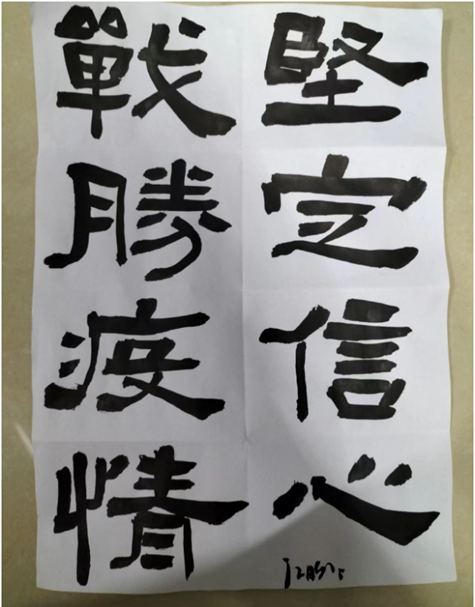 堅定信心
戰勝疫情